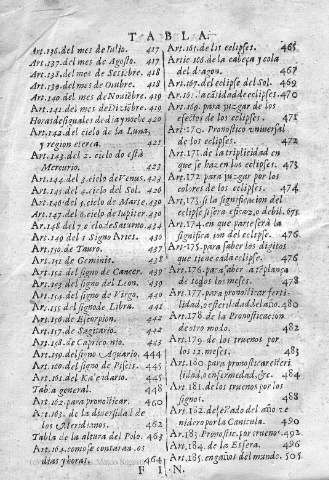 TABLA.
Art. 136. del mes de Iulio. 417
Art. 137. del mes de Agosto. 417
Art. 138. del mes de Setiẽbre. 418
Art. 139. del mes de Otubre. 418
Art. 140. del mes de Nouiẽbre. 419
Art. 141. del mes de Diziẽbre. 419
Horas desiguales de dia y noche 420
Art. 142. del ciclo de la Luna,
y region eterea. 421
Art. 143. del 2. ciclo do està
Mercurio. 423
Art. 144. del 3. ciclo de Venus. 423
Art. 145. del 4. ciclo del Sol. 426
Art. 146. del 5. ciclo de Marte. 430
Art. 147. del 6. ciclo de Iupiter 430
Art. 148. del 7. ciclo de Saturno. 434
Art. 149. del 1 Signo Aries. 430
Art. 150. de Tauro. 437
Art. 151. de Geminis. 438
Art. 152. del signo de Cancer. 439
Art. 153. del signo del Leon. 439
Art. 154. del signo de Virgo. 440
Art. 155. del signo de Libra. 442
Art. 156. de Escorpion. 442
Art. 157. de Sagitario. 442
Art. 158. de Capricornio. 443
Art. 159. del signo Aquario. 444
Art. 160. del signo de Piscis. 445
Art. 161. del Kalẽdario. 445
Tabla general. 448
Art. 162. para pronosticar. 460
Art. 163. de la diuersidad de
los Meridianos. 462
Tabla de la altura del Polo. 463
Art. 164. como se contaran os
dias y horas. 464
Art. 165. de los eclipses. 465
Artic. 166. de la cabeça y cola
del dragon. 467
Art. 167. del eclipse del Sol. 469
Art. 168. la cãtidad de eclipses. 470
Art. 169. para juzgar de los
efectos de los eclipses. 471
Art. 170. Pronostico vniuersal
de los eclipses. 472
Art. 171. de la triplicidad en
que se hazen los eclipses. 473
Art. 172. para juzgar por los
colores de los eclipses. 474
Art. 173. si la significacion del
eclipse sera eficaz, o debil.
Art. 174. en que parte serà la
significacion del eclipse. 476
Art. 175. para saber los digitos
que tiene cada eclipse. 476
Art. 176. para saber
de todos los meses. 478
Art. 177. para pronosticar ferti-
lidad, o esterilidad del año. 480
Art. 178. de la Pronosticacion
de otro modo. 482
Art. 179. de los truenos por
los 12. meses. 483
Art. 180. para pronosticar esteri-
lidad, o enfermedad, &c. 484
Art. 181. de los truenos por los
signos. 488
Art. 182. del estado del año ve-
nidero por la Canicula. 490
Art. 183. Pronostic. por truenos. 492
Art. 184. de la Esfera. 496
Art. 185. engaños del mundo. 505
FIN.